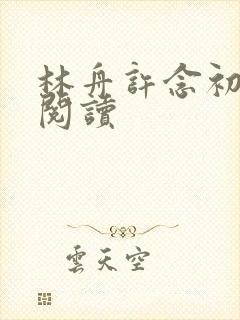 林舟許念初
閱讀
雲天空